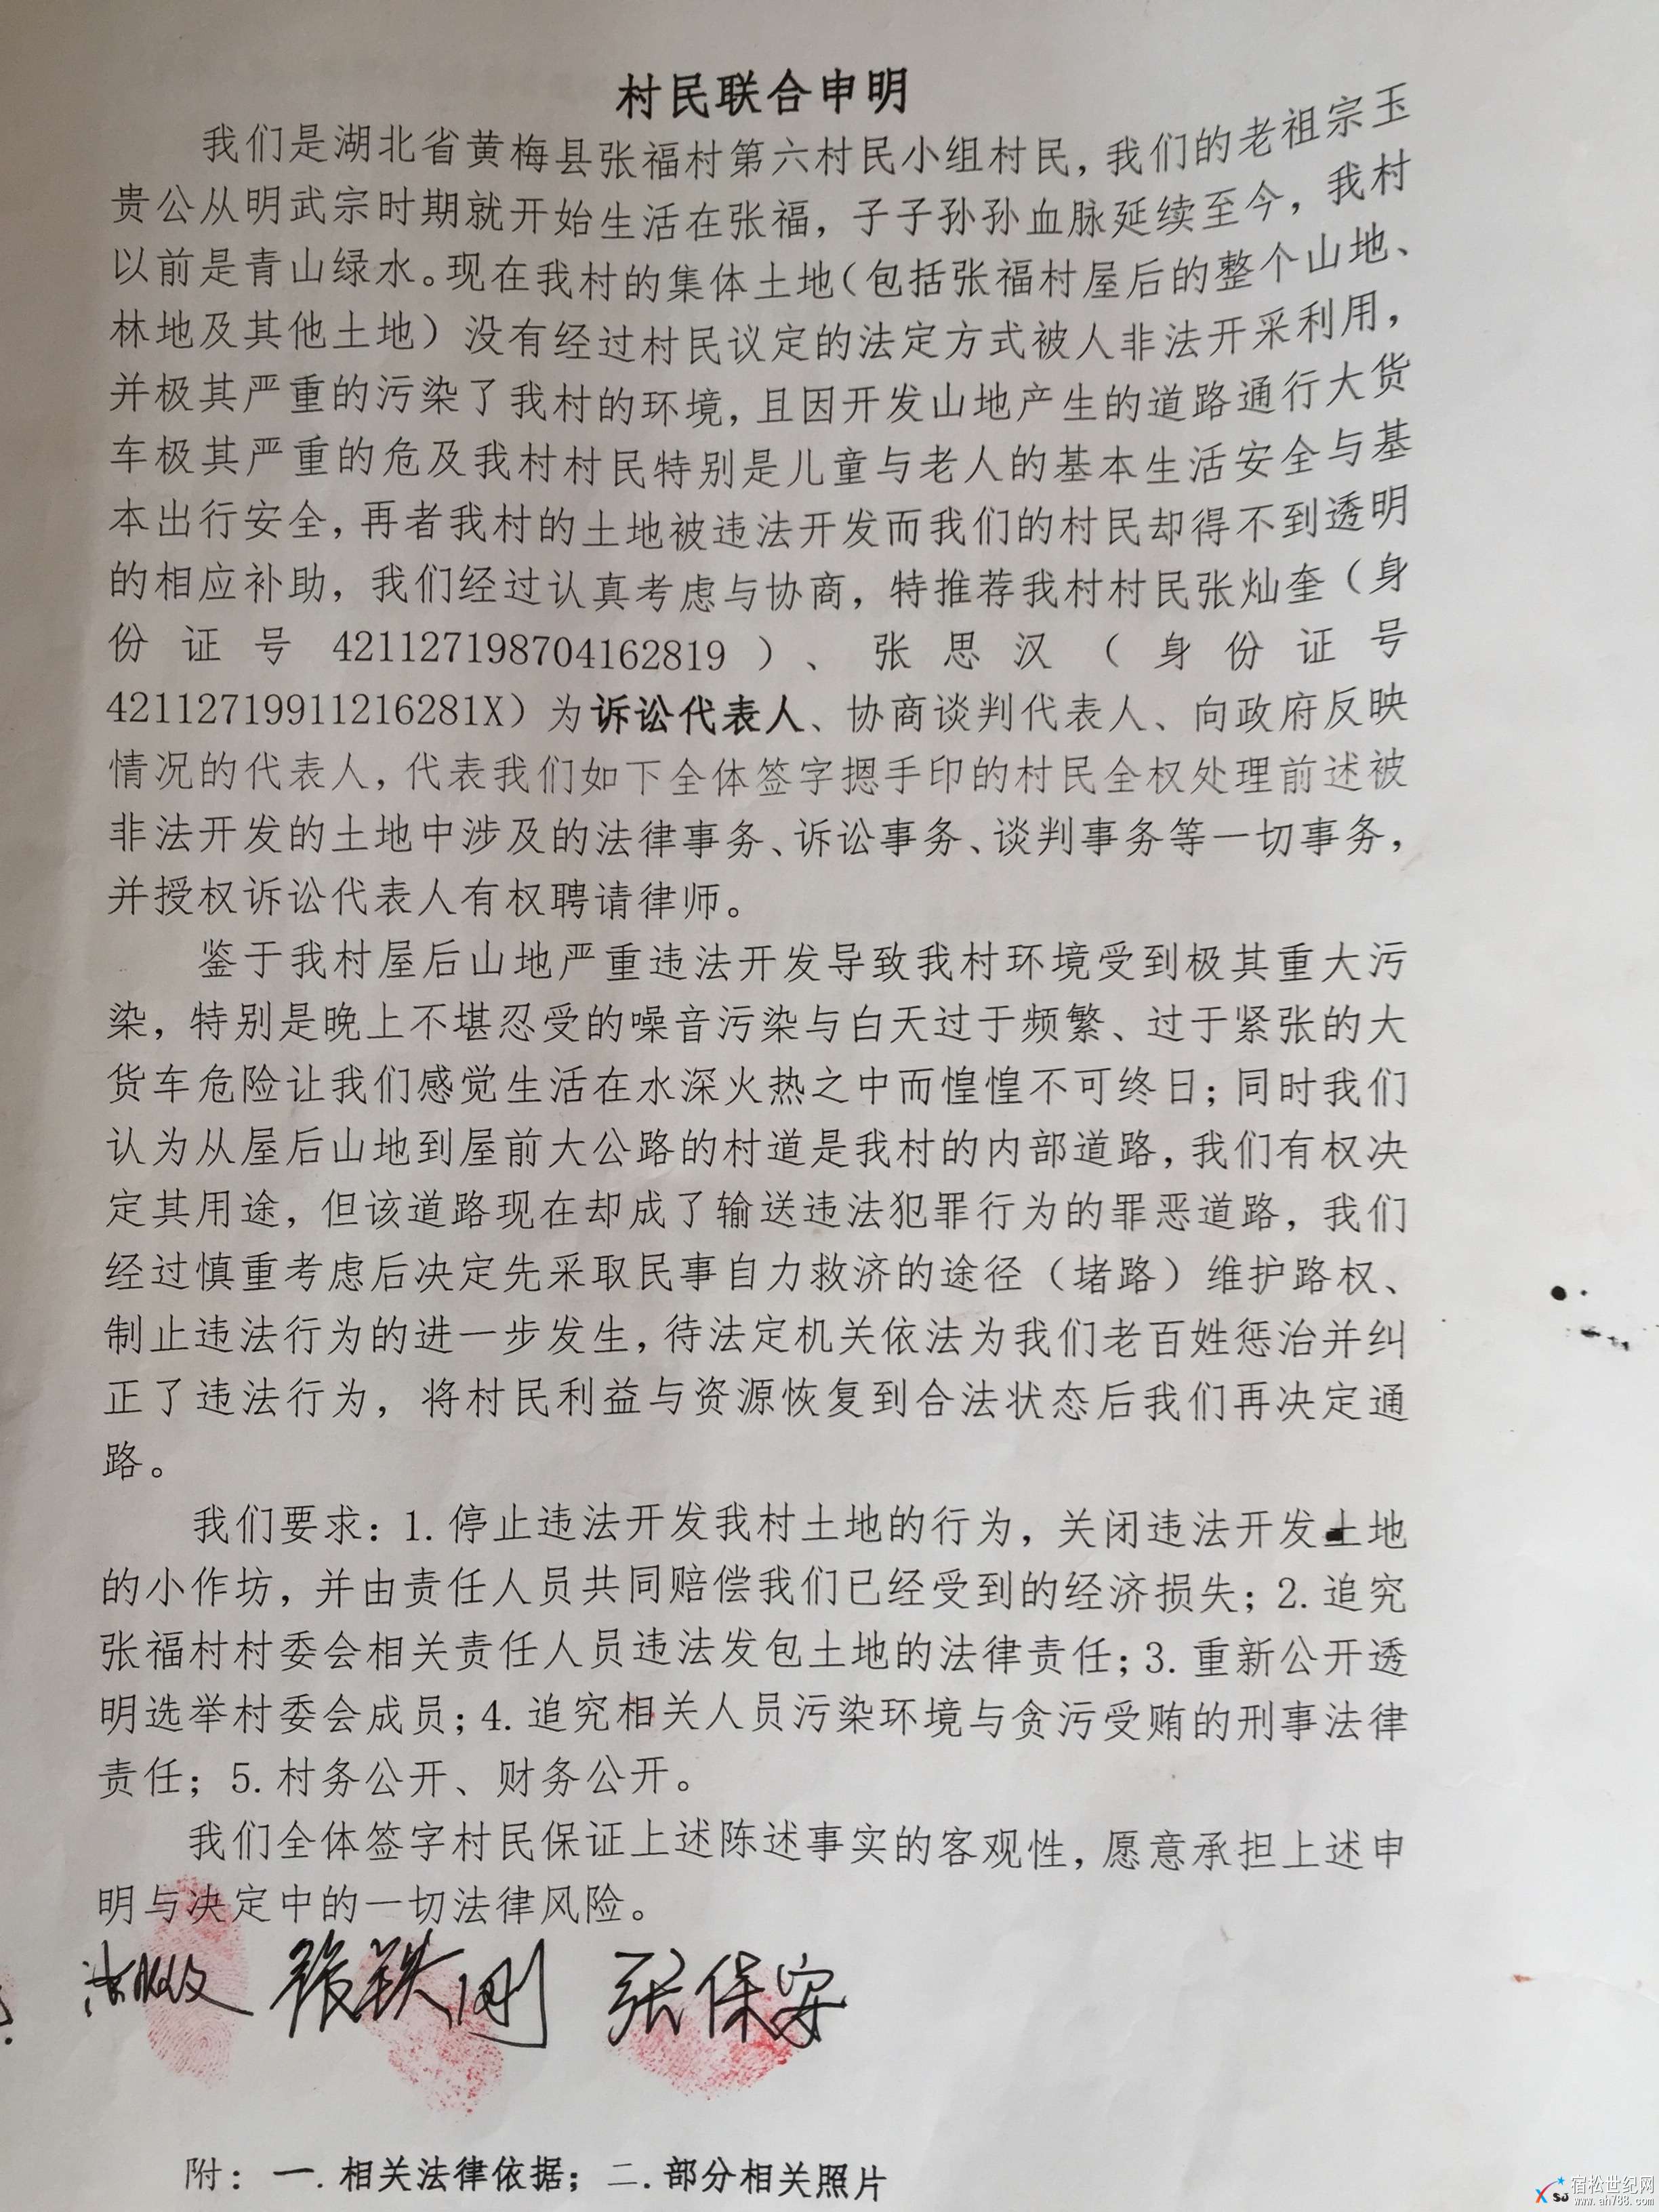 村民联合申明
我们是湖北省黄梅县张福村第六村民小组村民，我们的老祖宗玉
贵公从明武宗时期就开始生活在张福，子子孙孙血脉延续至今，我村
以前是青山绿水。现在我村的集体土地（包括张福村屋后的整个山地、
林地及其他土地）没有经过村民议定的法定方式被人非法开采利用，
并极其严重的污染了我村的环境，且因开发山地产生的道路通行大货
车极其严重的危及我村村民特别是儿童与老人的基本生活安全与基
本出行安全，再者我村的土地被违法开发而我们的村民却得不到透明
的相应补助，我们经过认真考虑与协商，特推荐我村村民张灿奎（身
份证号421127198704162819）、张思汉（身份证号
42112719911216281X）为诉讼代表人、协商谈判代表人、向政府反映
情况的代表人，代表我们如下全体签字摁手印的村民全权处理前述被
非法开发的土地中涉及的法律事务、诉讼事务、谈判事务等一切事务，
并授权诉讼代表人有权聘请律师。
鉴于我村屋后山地严重违法开发导致我村环境受到极其重大污
染，特别是晚上不堪忍受的噪音污染与白天过于频繁、过于紧张的大
货车危险让我们感觉生活在水深火热之中而惶惶不可终日；同时我们
认为从屋后山地到屋前大公路的村道是我村的内部道路，我们有权决
定其用途，但该道路现在却成了输送违法犯罪行为的罪恶道路，我们
经过慎重考虑后决定先采取民事自力救济的途径（堵路）维护路权、
制止违法行为的进一步发生，待法定机关依法为我们老百姓惩治并纠
正了违法行为，将村民利益与资源恢复到合法状态后我们再决定通
路。
我们要求：1.停止违法开发我村土地的行为，关闭违法开发土地
的小作坊，并由责任人员共同赔偿我们已经受到的经济损失；2.追究
张福村村委会相关责任人员违法发包土地的法律责任；3.重新公开透
明选举村委会成员；4.追究相关人员污染环境与贪污受贿的刑事法律
责任；5.村务公开、财务公开。
我们全体签字村民保证上述陈述事实的客观性，愿意承担上述申
明与决定中的一切法律风险。
张铁刚 张保安
附：一.相关法律依据；二.部分相关照片
宿松世纪网
www.ah788.com